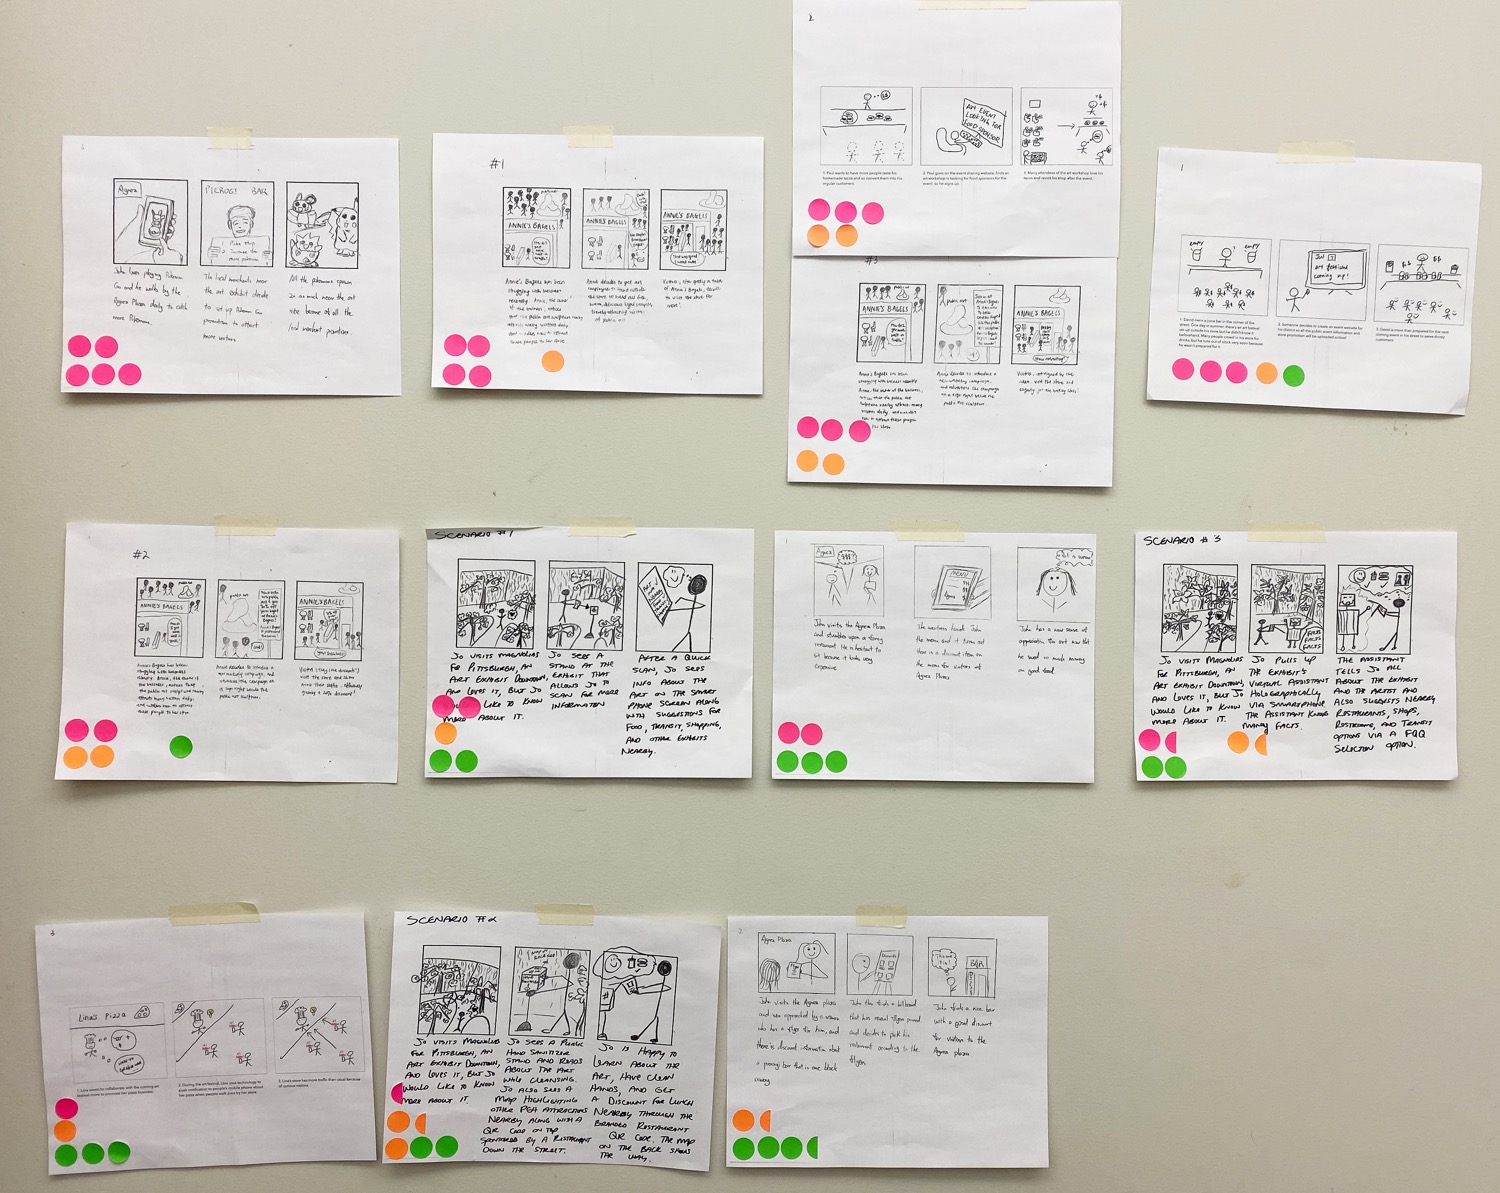 1
Agnes
PIEROGI BAR
1. Poke stop
John loves playing Pokemon
Go and he walks by the
Agnes Plaza daily to catch
more Pokemon.
The local merchants near
the art exhibit decide
to set up Pokemon Go
promotion to attract
more visitors
All the pokemons spawn
2x as much near the art
site because of all the
local merchant promotions.
#1
ANNIE'S BAGELS
ANNIE'S BAGELS
ANNIE'S BAGELS
Annie's Bagels has been
struggling with business
recently. Annie, the owner of
the business, notices
that the public art sculpture nearby
attracts many visitors daily
these people to her store
Annie decides to get art
employees to stand outside
the store to hand out free,
of public art
to visit the store for
more!
2
AN EVENT
LOOKING FOR
FOOD SPONSOR
1. Paul wants to have more people taste his
homemade tacos and so convert them into his
regular customers.
2. Paul goes on the event sharing website, finds an
art workshop is looking for food sponsors for the
event, so he signs up.
3. Many attendees of the art workshop love his
tacos and revisit his shop after the event.
#3
ANNIE'S BAGELS
public art
ANNIE'S BAGELS
Annie's Bagels has been
struggling with business recently.
Annie, the owner of the business,
notices that the public art
sculpture nearby attracts many
visitors daily, and wonders
how to attract these people
to her store
Annie decides to introduce a
new marketing campaign,
and advertises the campaign
on a sign right beside the
public art sculpture
Visitors, intrigued by the
idea, visit the store and
1
EMPTY
EMPTY
Jul 7
art festival
coming up!
1. David owns a juice bar in the corner of the
street. One day in summer, there's an art festival
set up outside his store but he didn't know it
beforehand. Many people crowd in his store for
drinks, but he runs out of stock very soon because
he wasn't prepared for it.
2. Someone decides to create an event website for
his district so all the public event information and
store promotion will be uploaded online!
3. David is more than prepared for the next
coming event in his street to serve thirsty
customers.
#2
ANNIE'S BAGELS
public art
ANNIE'S BAGELS
Annie's Bagels has been
struggling with business
recently. Annie, the owner of the
business, notices that
the public art sculpture nearby
attracts many visitors daily,
and wonders how to attract
these people to her store
Annie decides to introduce a
new marketing campaign, and
advertises the campaign on
a sign right outside the
public art sculpture.
visit the store and share
SCENARIO #1
JO VISITS MAGNOLIAS
FOR PITTSBURGH, AN
ART EXHIBIT DOWNTOWN,
AND LOVES IT, BUT JO
WOULD LIKE TO KNOW
MORE ABOUT IT.
JO SEES A
STAND AT THE
EXHIBIT THAT
ALLOWS JO TO
SCAN FOR MORE
INFORMATION
AFTER A QUICK
SCAN, JO SEES
INFO ABOUT THE
ART ON THE SMART
PHONE SCREEN ALONG
WITH SUGGESTIONS FOR
FOOD, TRANSIT, SHOPPING,
AND OTHER EXHIBITS
NEARBY.
1
Agnes
$$$?
MENU
Agnes
John visits the Agnes Plaza
and stumbles upon a fancy
restaurant. He is hesitant to
sit because it looks very
expensive
The waitress hands John
the menu and it turns out
there is a discount item on
the menu for visitors at
Agnes Plaza
John has a new sense of
appreciation for art now that
he saved so much money
on good food.
SCENARIO #3
FACTS
FACTS
FACTS
JO VISITS MAGNOLIAS
FOR PITTSBURGH, AN
ART EXHIBIT DOWNTOWN,
AND LOVES IT, BUT JO
WOULD LIKE TO KNOW
MORE ABOUT IT.
JO PULLS UP
THE EXHIBIT'S
VIRTUAL ASSISTANT
HOLOGRAPHICALLY
VIA SMARTPHONE.
THE ASSISTANT KNOWS
MANY FACTS.
THE ASSISTANT
TELLS JO ALL
ABOUT THE EXHIBIT
AND THE ARTIST AND
ALSO SUGGESTS NEARBY
RESTAURANTS, SHOPS,
RESTROOMS, AND TRANSIT
OPTIONS VIA A FAQ
SELECTION OPTION.
3
Lina's Pizza
1. Lina wants to collaborate with the coming art
festival more to promote her pizza business.
2. During the art festival, Lina uses technology to
push notification to people's mobile phone about
her pizza when people walk pass by her pizza
3. Lina's store has more traffic than usual because
of curious visitors
SCENARIO #2
JO VISITS MAGNOLIAS
FOR PITTSBURGH, AN
ART EXHIBIT DOWNTOWN,
AND LOVES IT, BUT JO
WOULD LIKE TO KNOW
MORE ABOUT IT.
JO SEES A PUBLIC
HAND SANITIZER
STAND AND READS
ABOUT THE ART
WHILE CLEANSING.
JO ALSO SEES A
MAP HIGHLIGHTING
OTHER PGH ATTRACTIONS
NEARBY ALONG WITH A
QR CODE ON TOP
SPONSORED BY A RESTAURANT
DOWN THE STREET.
JO IS HAPPY TO
LEARN ABOUT THE
ART, HAVE CLEAN
HANDS, AND GET
A DISCOUNT FOR LUNCH
NEARBY THROUGH THE
BRANDED RESTAURANT
QR CODE. THE MAP
ON THE BACK SHOWS
THE WAY.
2
Agnes Plaza
BAR
John visits the Agnes plaza
and was approached by a woman
who has a flyer for him, and
there is discount information about
a pierogi bar that is one block
away
John the finds a billboard
that has several flyers pinned
and decides to pick his
restaurant according to the
flyers.
John finds a nice bar
with a good discount
for visitors to the
Agnes plaza